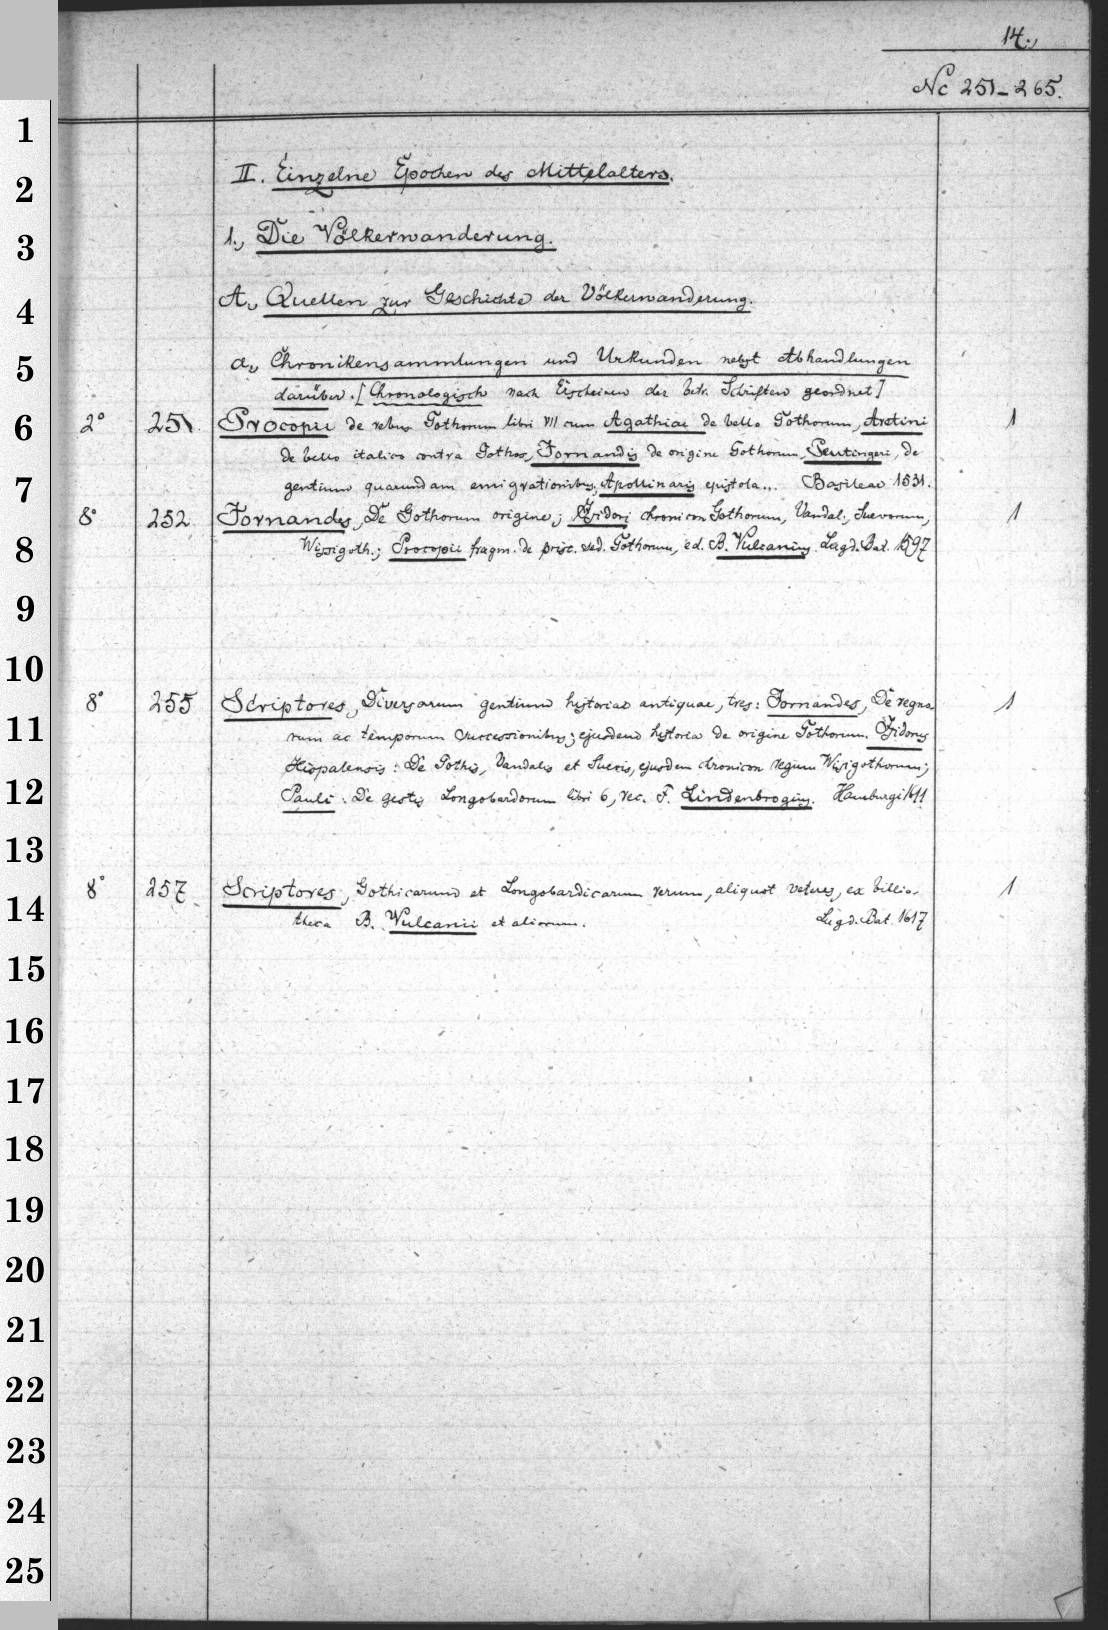 14.,
Nc 251-265.
1
2
II. Einzelne Epochen des Mittelalters.
3
1., Die Völkerwanderung.
4
A., Quellen zur Geschichte der Völkerwanderung.
5
a., Chronikensammlungen und Urkunden nebst Abhandlungen
darüber. [Chronologisch nach Erscheinen der betr. Schriften geordnet]
6
2° 251. Procopii de rebus Gothorum libri VII cum Agathiae de bello Gothorum, Aretini 1
de bello italico contra Gothos, Jornandis de origine Gothorum, Peutingeri, de
7
gentium quarundam emigrationibus, Apollinaris epistola... Basileae 1531.
8° 252 Jornandes, De Gothorum origine; Isidori chronicon Gothorum, Vandal., Suevorum, 1
8
Wisigoth.; Procopii fragm. de prisc. sed. Gothorum, ed. B. Vulcanius. Lugd. Bat. 1597
9
10
8° 255 Scriptores, Diversarum gentium historiae antiquae, tres: Jornandes, De regno- 1
11
rum ac temporum successionibus; ejusdem historia de origine Gothorum. Isidorus
Hispalensis: De Gothis, Vandalis et Suevis, ejusdem chronicon regum Wisigothorum;
12
Pauli: De gestis Longobardorum libri 6, rec. F. Lindenbrogius. Hamburgi 1611
13
8° 257 Scriptores, Gothicarum et Longobardicarum rerum, aliquot veteres, ex biblio- 1
14
theca B. Vulcanii et aliorum. Lugd. Bat. 1617
15
16
17
18
19
20
21
22
23
24
25